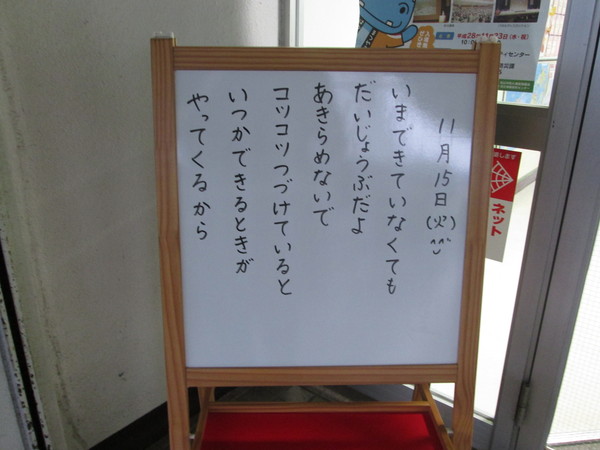 11月15日(火)^^
いまできていなくても
だいじょうぶだよ
あきらめないで
コツコツつづけていると
いつかできるときが
やってくるから
平成28年11月23日(水・祝)
ティセンター
ネット